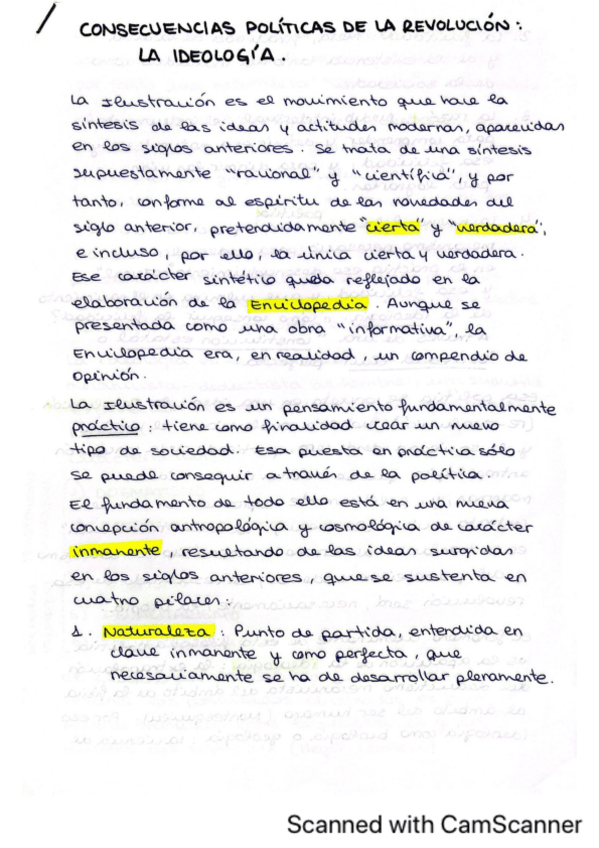 CONSECUENCIAS POLÍTICAS DE LA REVOLUCIÓN:
LA IDEOLOGÍA.
La Ilustración es el movimiento que hace la
síntesis de las ideas y actitudes modernas, aparecidas
en los siglos anteriores. Se trata de una síntesis
supuestamente "racional" y "científica", y por
tanto, conforme al espíritu de las novedades del
siglo anterior, pretendidamente "cierta" y "verdadera",
e incluso, por ello, la única cierta y verdadera.
Ese carácter sintético queda reflejado en la
elaboración de la Enciclopedia. Aunque se
presentada como una obra "informativa", la
Enciclopedia era, en realidad, un compendio de
opinión.
La Ilustración es un pensamiento fundamentalmente
práctico: tiene como finalidad crear un nuevo
tipo de sociedad. Esa puesta en práctica sólo
se puede conseguir a través de la política.
El fundamento de todo ello está en una nueva
concepción antropológica y cosmológica de carácter
inmanente, resultando de las ideas surgidas
en los siglos anteriores, que se sustenta en
cuatro pilares:
1. Naturaleza: Punto de partida, entendida en
clave inmanente y como perfecta, que
necesariamente se ha de desarrollar plenamente.
Scanned with CamScanner